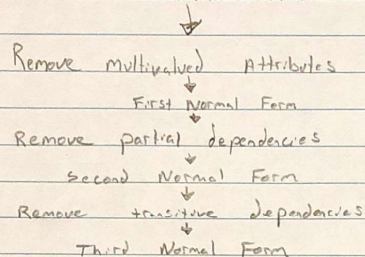 Remove multivalued Attributes
First Normal Form
Remove partial dependencies
Second Normal Form
Remove transitive dependencies
Third Normal Form